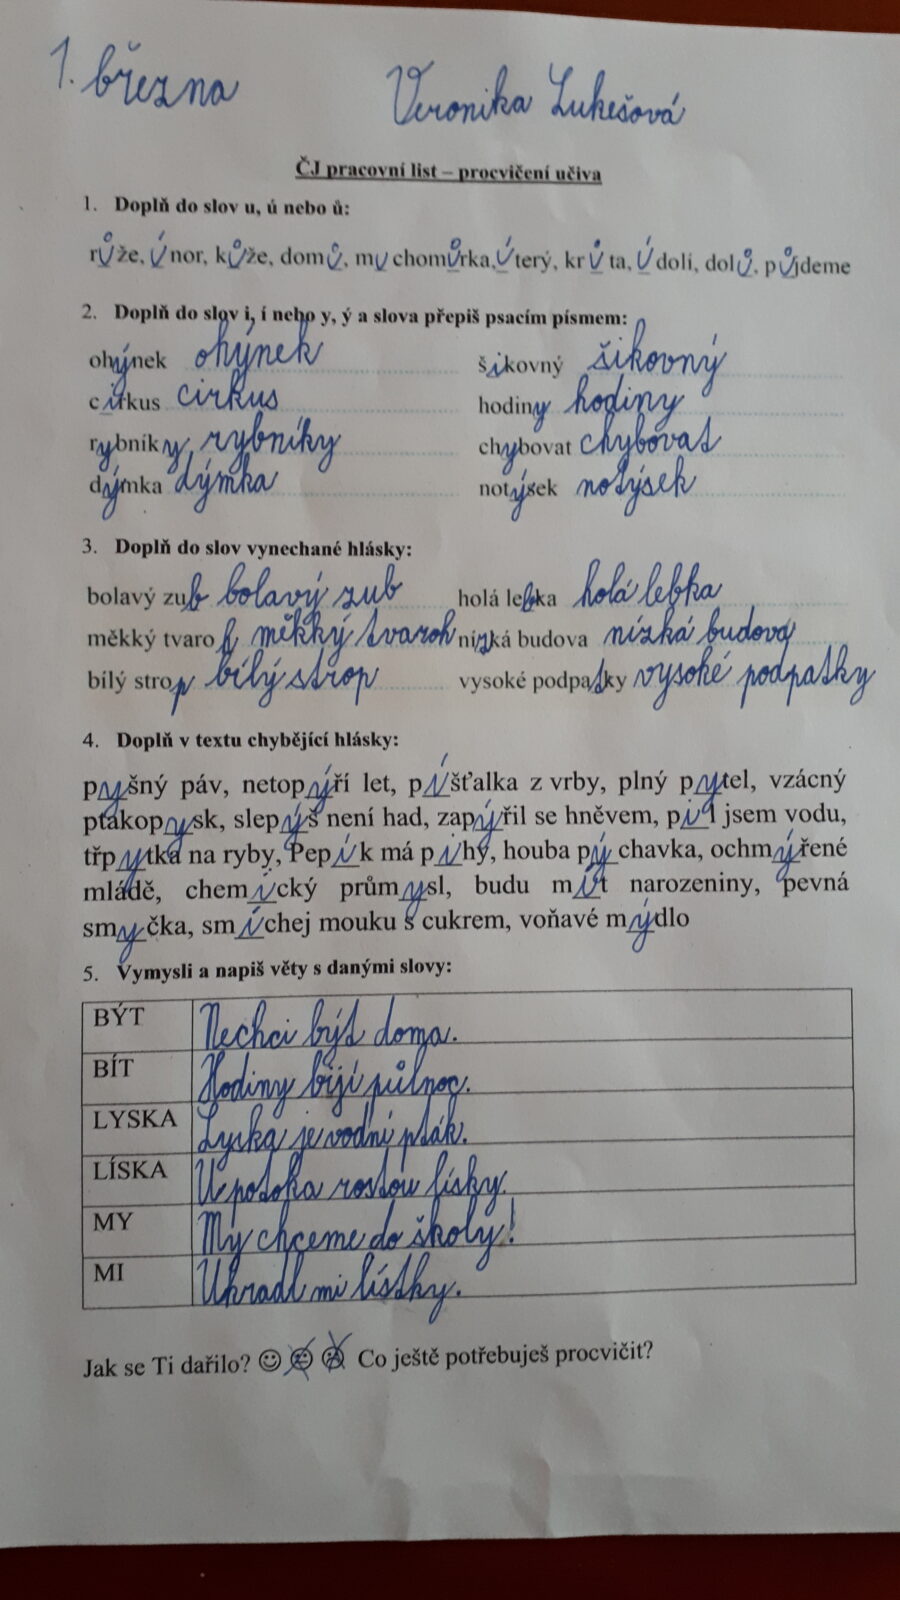 1. března Veronika Lukešová
ČJ pracovní list – procvičení učiva
1. Doplň do slov u, ú nebo ů:
růže, únor, kůže, domů, muchomůrka, úterý, krůta, údolí, dolů, půjdeme
2. Doplň do slov i, í nebo y, ý a slova přepiš psacím písmem:
ohýnek ohýnek šikovný šikovný
cirkus cirkus hodiny hodiny
rybníky rybníky chybovat chybovat
dýmka dýmka notýsek notýsek
3. Doplň do slov vynechané hlásky:
bolavý zub bolavý zub holá lebka holá lebka
měkký tvaroh měkký tvaroh nízká budova nízká budova
bílý strop bílý strop vysoké podpatky vysoké podpatky
4. Doplň v textu chybějící hlásky:
pyšný páv, netopýří let, píšťalka z vrby, plný pytel, vzácný
ptakopysk, slepýš není had, zapýřil se hněvem, pil jsem vodu,
třpytka na ryby, Pepík má pihy, houba pýchavka, ochmýřené
mládě, chemický průmysl, budu mít narozeniny, pevná
smyčka, smíchej mouku s cukrem, voňavé mýdlo
5. Vymysli a napiš věty s danými slovy:
BÝT Nechci být doma.
BÍT Hodiny bijí půlnoc.
LYSKA Lyska je vodní pták.
LÍSKA U potoka rostou lísky.
MY My chceme do školy!
MI Ukradl mi lístky.
Jak se Ti dařilo? Co ještě potřebuješ procvičit?